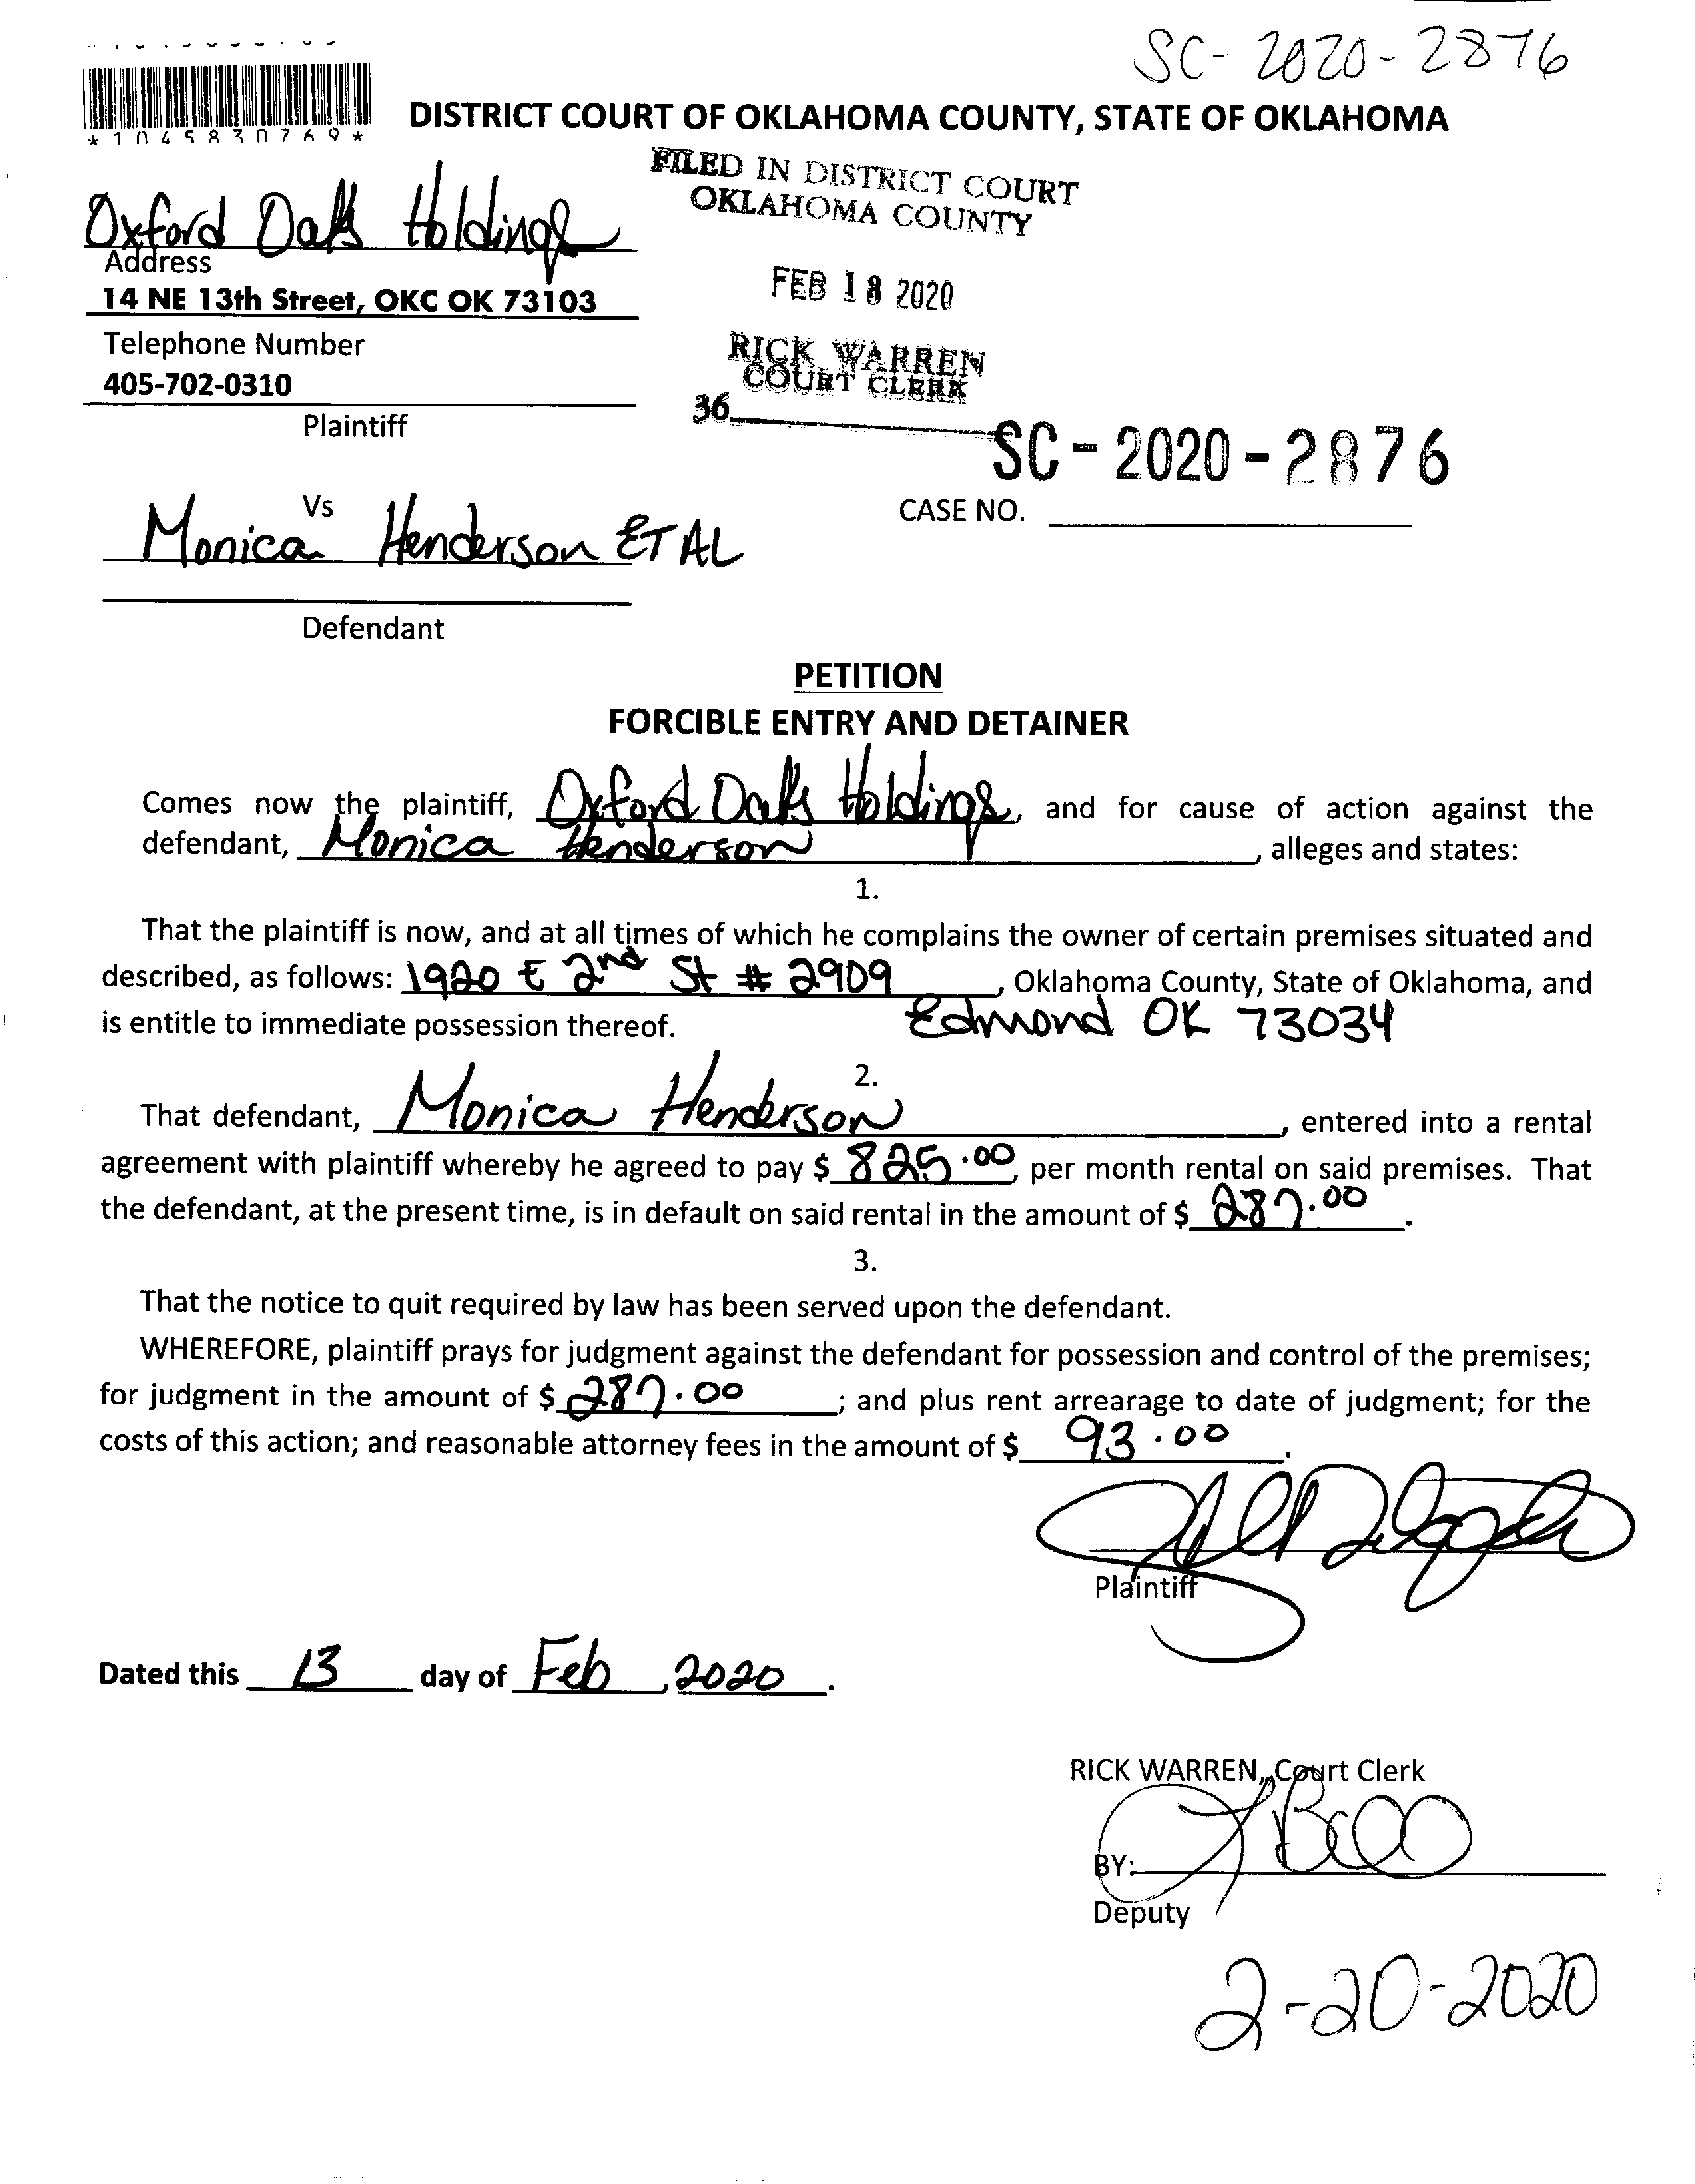 SC-2020-2876
*1045830769*
DISTRICT COURT OF OKLAHOMA COUNTY, STATE OF OKLAHOMA
FILED IN DISTRICT COURT
OKLAHOMA COUNTY
Oxford Oaks Holdings
Address
14 NE 13th Street, OKC OK 73103
FEB 18 2020
Telephone Number
405-702-0310
RICK WARREN
COURT CLERK
36
Plaintiff
SC-2020-2876
Vs
CASE NO.
Monica Henderson ET AL
Defendant
PETITION
FORCIBLE ENTRY AND DETAINER
Comes now the plaintiff, Oxford Oaks Holdings, and for cause of action against the
defendant, Monica Henderson, alleges and states:
1.
That the plaintiff is now, and at all times of which he complains the owner of certain premises situated and
described, as follows: 1920 E 2nd St # 2909, Oklahoma County, State of Oklahoma, and
is entitle to immediate possession thereof. Edmond OK 73034
2.
That defendant, Monica Henderson, entered into a rental
agreement with plaintiff whereby he agreed to pay $ 825.00, per month rental on said premises. That
the defendant, at the present time, is in default on said rental in the amount of $ 287.00.
3.
That the notice to quit required by law has been served upon the defendant.
WHEREFORE, plaintiff prays for judgment against the defendant for possession and control of the premises;
for judgment in the amount of $ 287.00; and plus rent arrearage to date of judgment; for the
costs of this action; and reasonable attorney fees in the amount of $ 93.00.
Plaintiff
Dated this 13 day of Feb, 2020.
RICK WARREN, Court Clerk
BY:
Deputy
2-20-2020